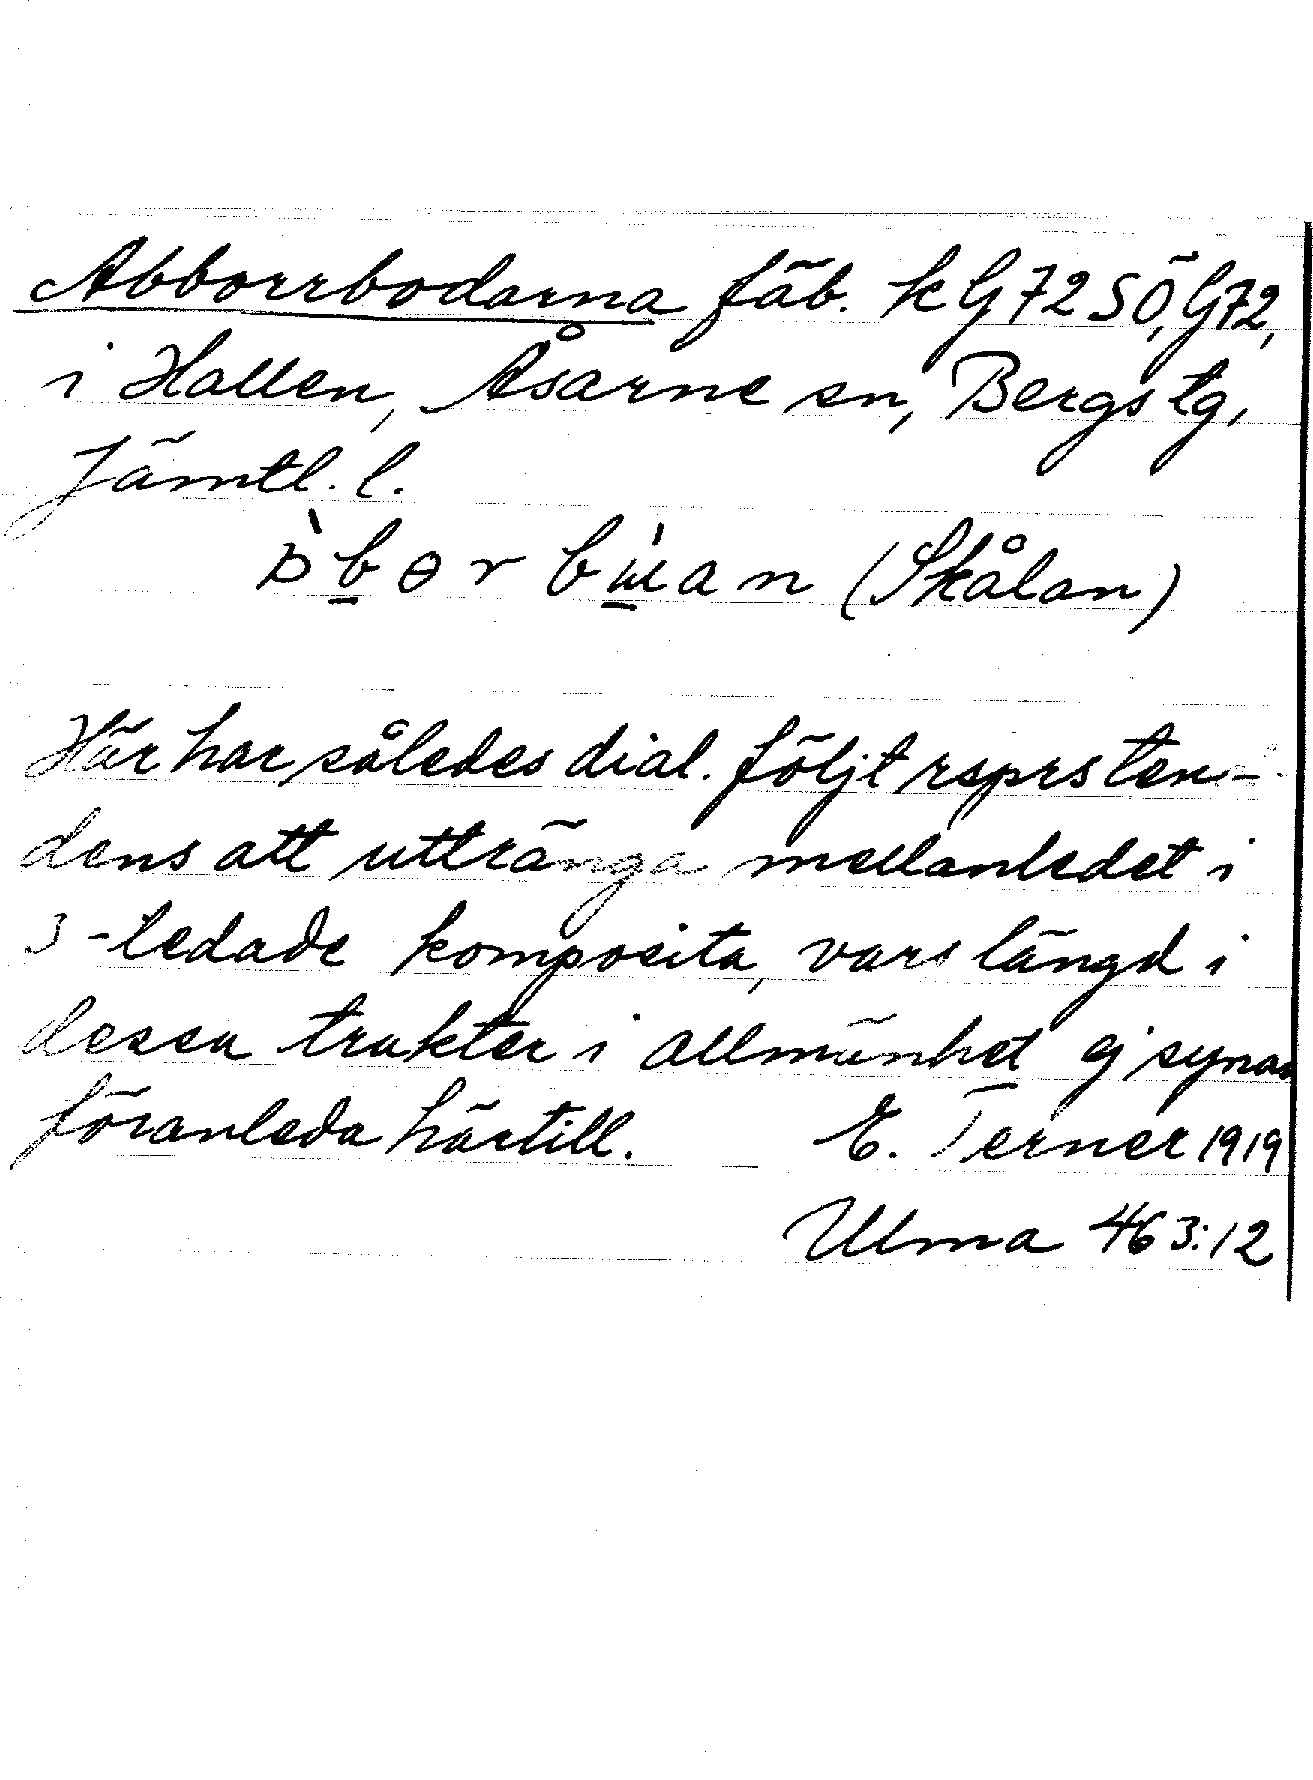 Abborrbodarna fäb. kG72SÖ, G72,
i Hallen, Åsarne sn, Bergs tg,
Jämtl. l.
(Skålan)
Här har således dial. följt rsprs ten-
dens att uttränga mellanledet i
3-ledade komposita, vars längd i
dessa trakter i allmänhet ej synas
föranleda härtill. E. Terner 1919
Ulma 463:12